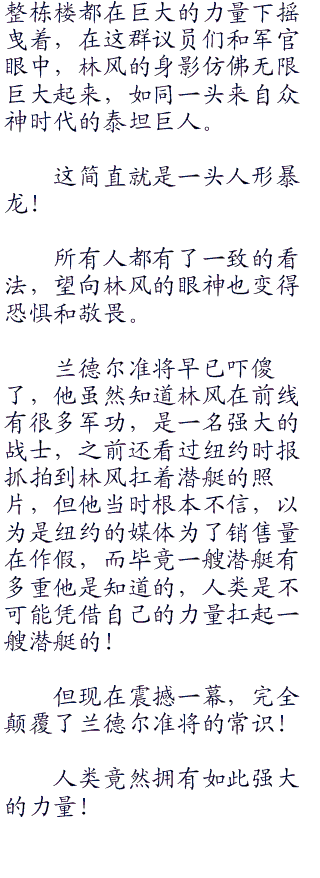 整栋楼都在巨大的力量下摇
曳着，在这群议员们和军官
眼中，林风的身影仿佛无限
巨大起来，如同一头来自众
神时代的泰坦巨人。
这简直就是一头人形暴
龙！
所有人都有了一致的看
法，望向林风的眼神也变得
恐惧和敬畏。
兰德尔准将早已吓傻
了，他虽然知道林风在前线
有很多军功，是一名强大的
战士，之前还看过纽约时报
抓拍到林风扛着潜艇的照
片，但他当时根本不信，以
为是纽约的媒体为了销售量
在作假，而毕竟一艘潜艇有
多重他是知道的，人类是不
可能凭借自己的力量扛起一
艘潜艇的！
但现在震撼一幕，完全
颠覆了兰德尔准将的常识！
人类竟然拥有如此强大
的力量！